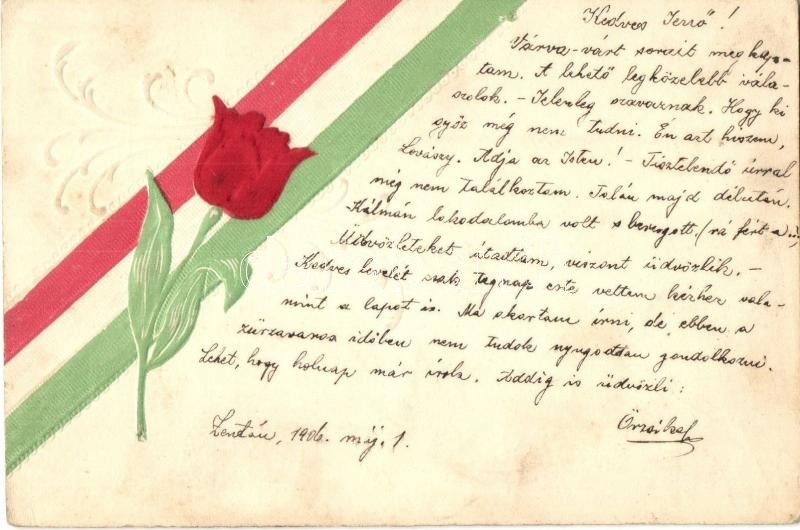 Kedves Jenő!
Várva-várt sorait megkap-
tam. A lehető legközelebb vála-
szolok. - Jelenleg szavaznak. Hogy ki
győz még nem tudni. Én azt hiszem,
Lovászy. Adja az Isten! - Tisztelendő úrral
még nem találkoztam. Talán majd délután.
Kálmán lakodalomba volt s berugott. (rá fért a
Üdvözleteket átadtam, viszont üdvözlik. -
Kedves levelét csak tegnap este vettem kézhez vala-
mint a lapot is. Ma akartam írni, de ebben a
zűrzavaros időben nem tudok nyugodtan gondolkozni.
Lehet, hogy holnap már írok. Addig is üdvözli:
Zentán, 1906. máj. 1.